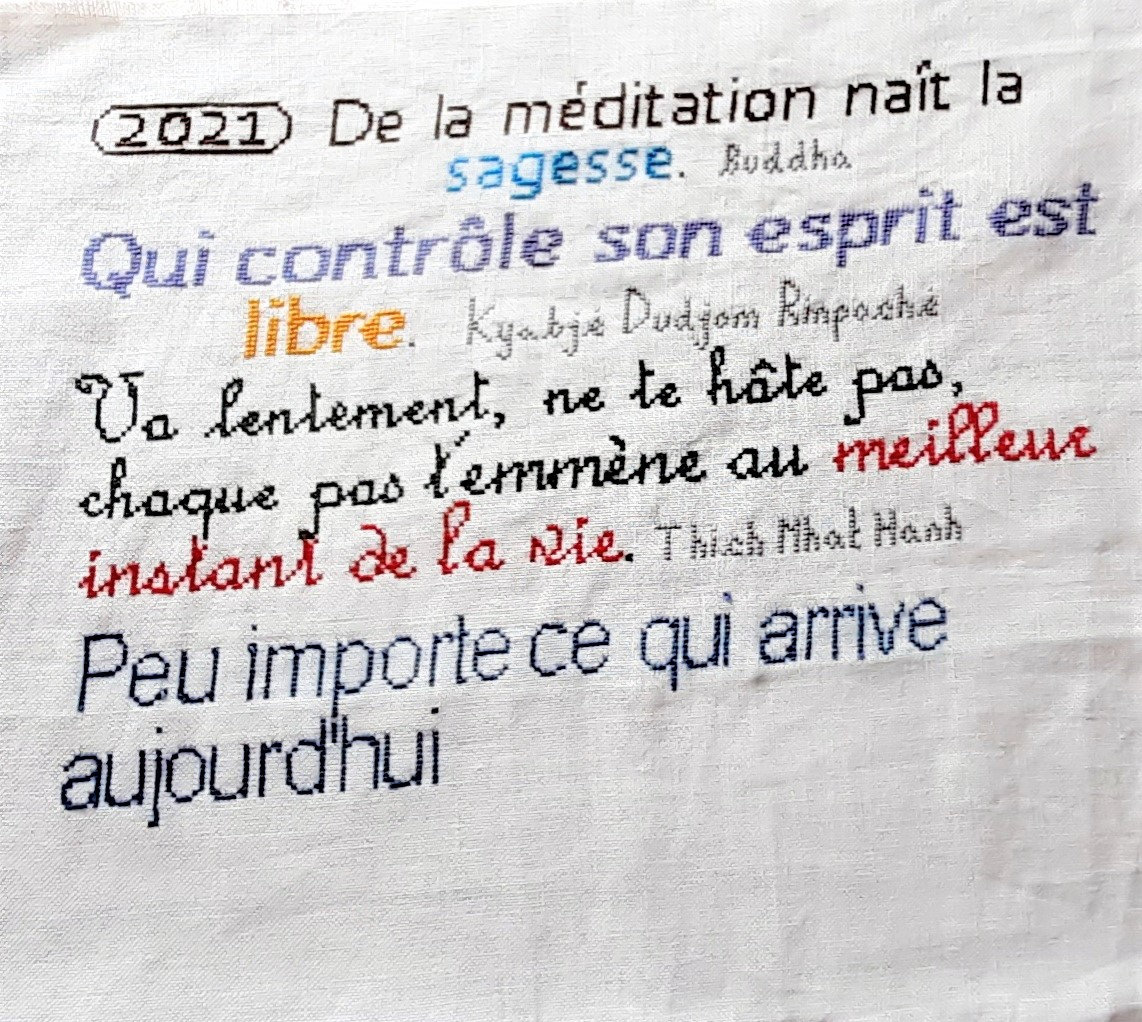 2021 De la méditation naît la
sagesse. Buddha
Qui contrôle son esprit est
libre. Kyabjé Dudjom Rinpoché
Va lentement, ne te hâte pas,
chaque pas t'emmène au meilleur
instant de la vie. Thich Nhat Hanh
Peu importe ce qui arrive
aujourd'hui